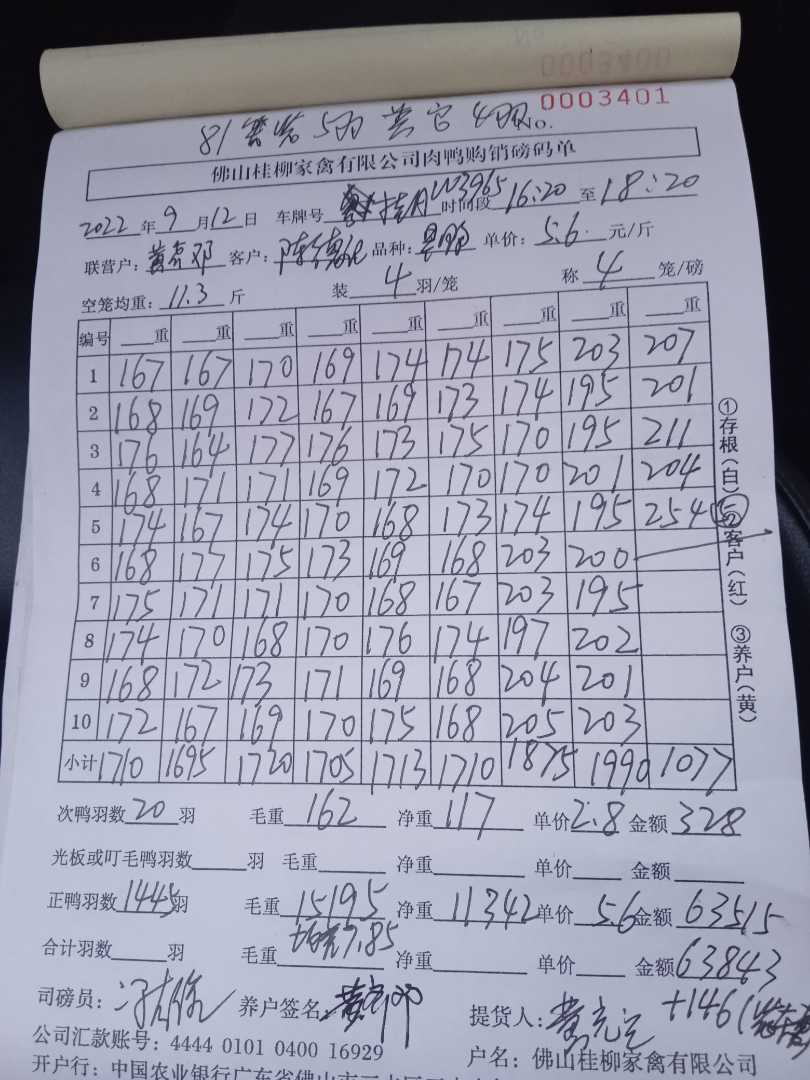 0003400
0003401
81 5羽 4羽 No.
佛山桂柳家禽有限公司肉鸭购销磅码单
2022年9月12日 车牌号 W3965 时间段 16:20 至 18:20
联营户: 黄 邓 客户: 陈 品种: 单价: 5.6 元/斤
空笼均重: 11.3 斤 装 4 羽/笼 称 4 笼/磅
编号 重 重 重 重 重 重 重 重 重
1 167 167 170 169 174 174 175 203 207
2 168 169 172 167 169 173 174 195 201
3 176 164 177 176 173 175 170 195 211
4 168 171 171 169 172 170 170 201 204
5 174 167 174 170 168 173 174 195 254 ⑤
6 168 177 175 173 169 168 203 200
7 175 171 171 170 168 167 203 195
8 174 170 168 170 176 174 197 202
9 168 172 173 171 169 168 204 201
10 172 167 169 170 175 168 205 203
小计 1710 1695 1720 1705 1713 1710 1875 1990 1077
①存根(白) ②客户(红) ③养户(黄)
次鸭羽数 20 羽 毛重 162 净重 117 单价 2.8 金额 328
光板或叮毛鸭羽数 羽 毛重 净重 单价 金额
正鸭羽数 1445 羽 毛重 15195 净重 11342 单价 5.6 金额 63515
合计羽数 羽 毛重 7.85 净重 单价 金额 63843
司磅员: 养户签名: 黄 邓 提货人: 黄 +146
公司汇款账号: 4444 0101 0400 16929 户名: 佛山桂柳家禽有限公司
开户行: 中国农业银行广东省佛山市三水区